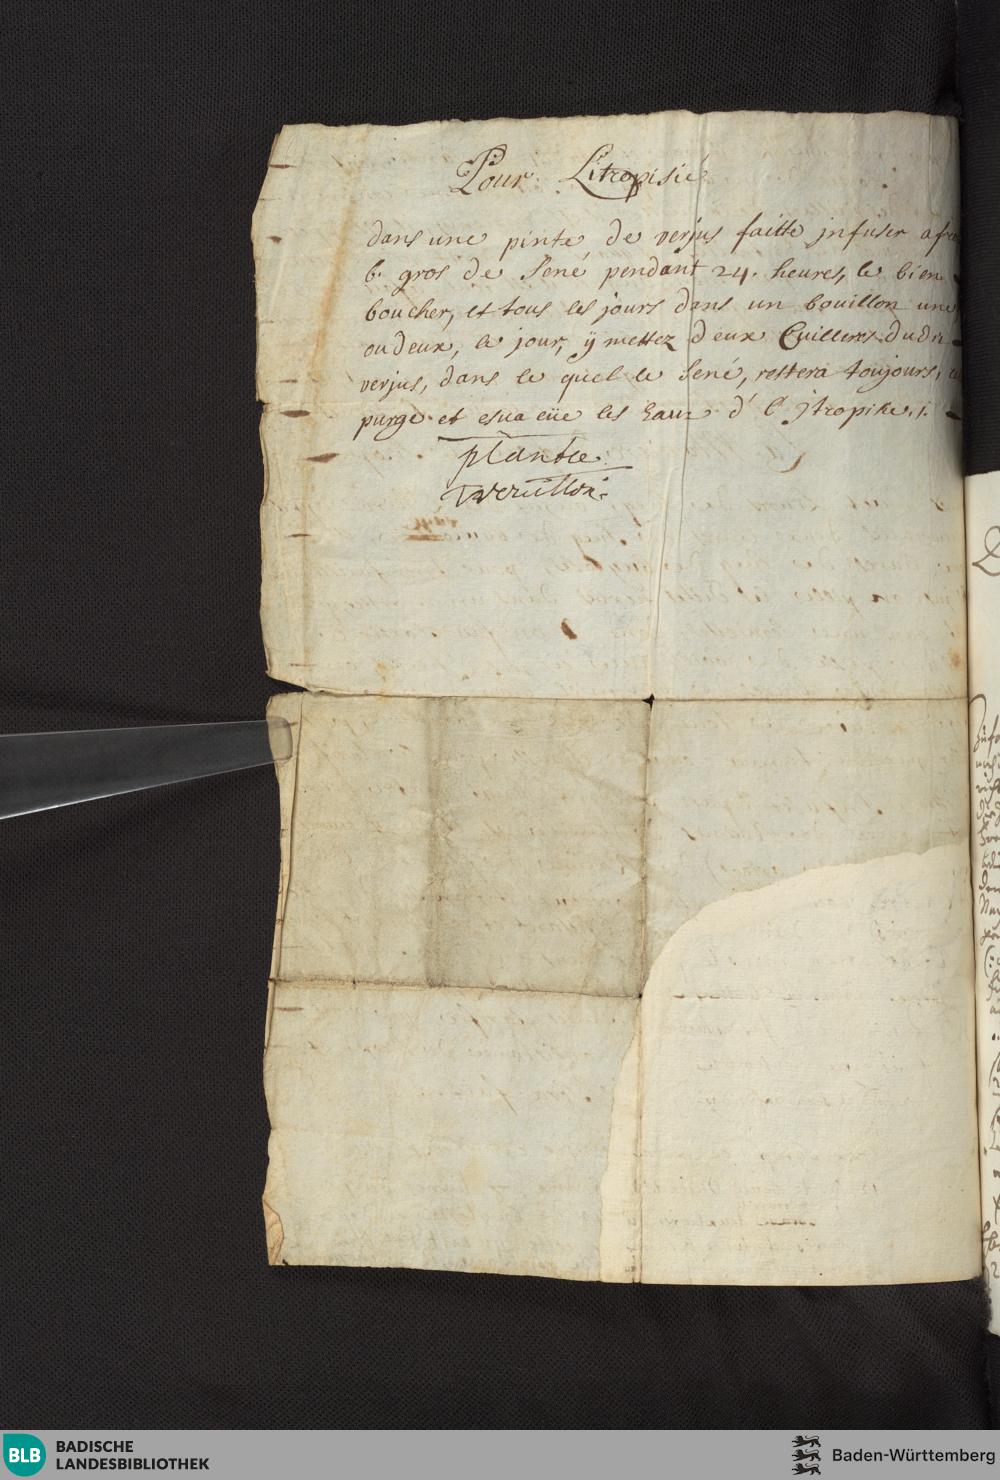 Pour Litropisie
dans une pinte de verjus faitte jnfuser a fr
6. gros de Sené pendant 24. heures, le bien
boucher, et tous les jours dans un bouillon une
ou deux, le jour, ÿ mettez deux Cuilleres dudi
verjus, dans le quel le Sené, restera toujours,
purge et esvacüe les Eaux d' l' Jtropisie ./.
plantee
BLB BADISCHE
LANDESBIBLIOTHEK
Baden-Württemberg